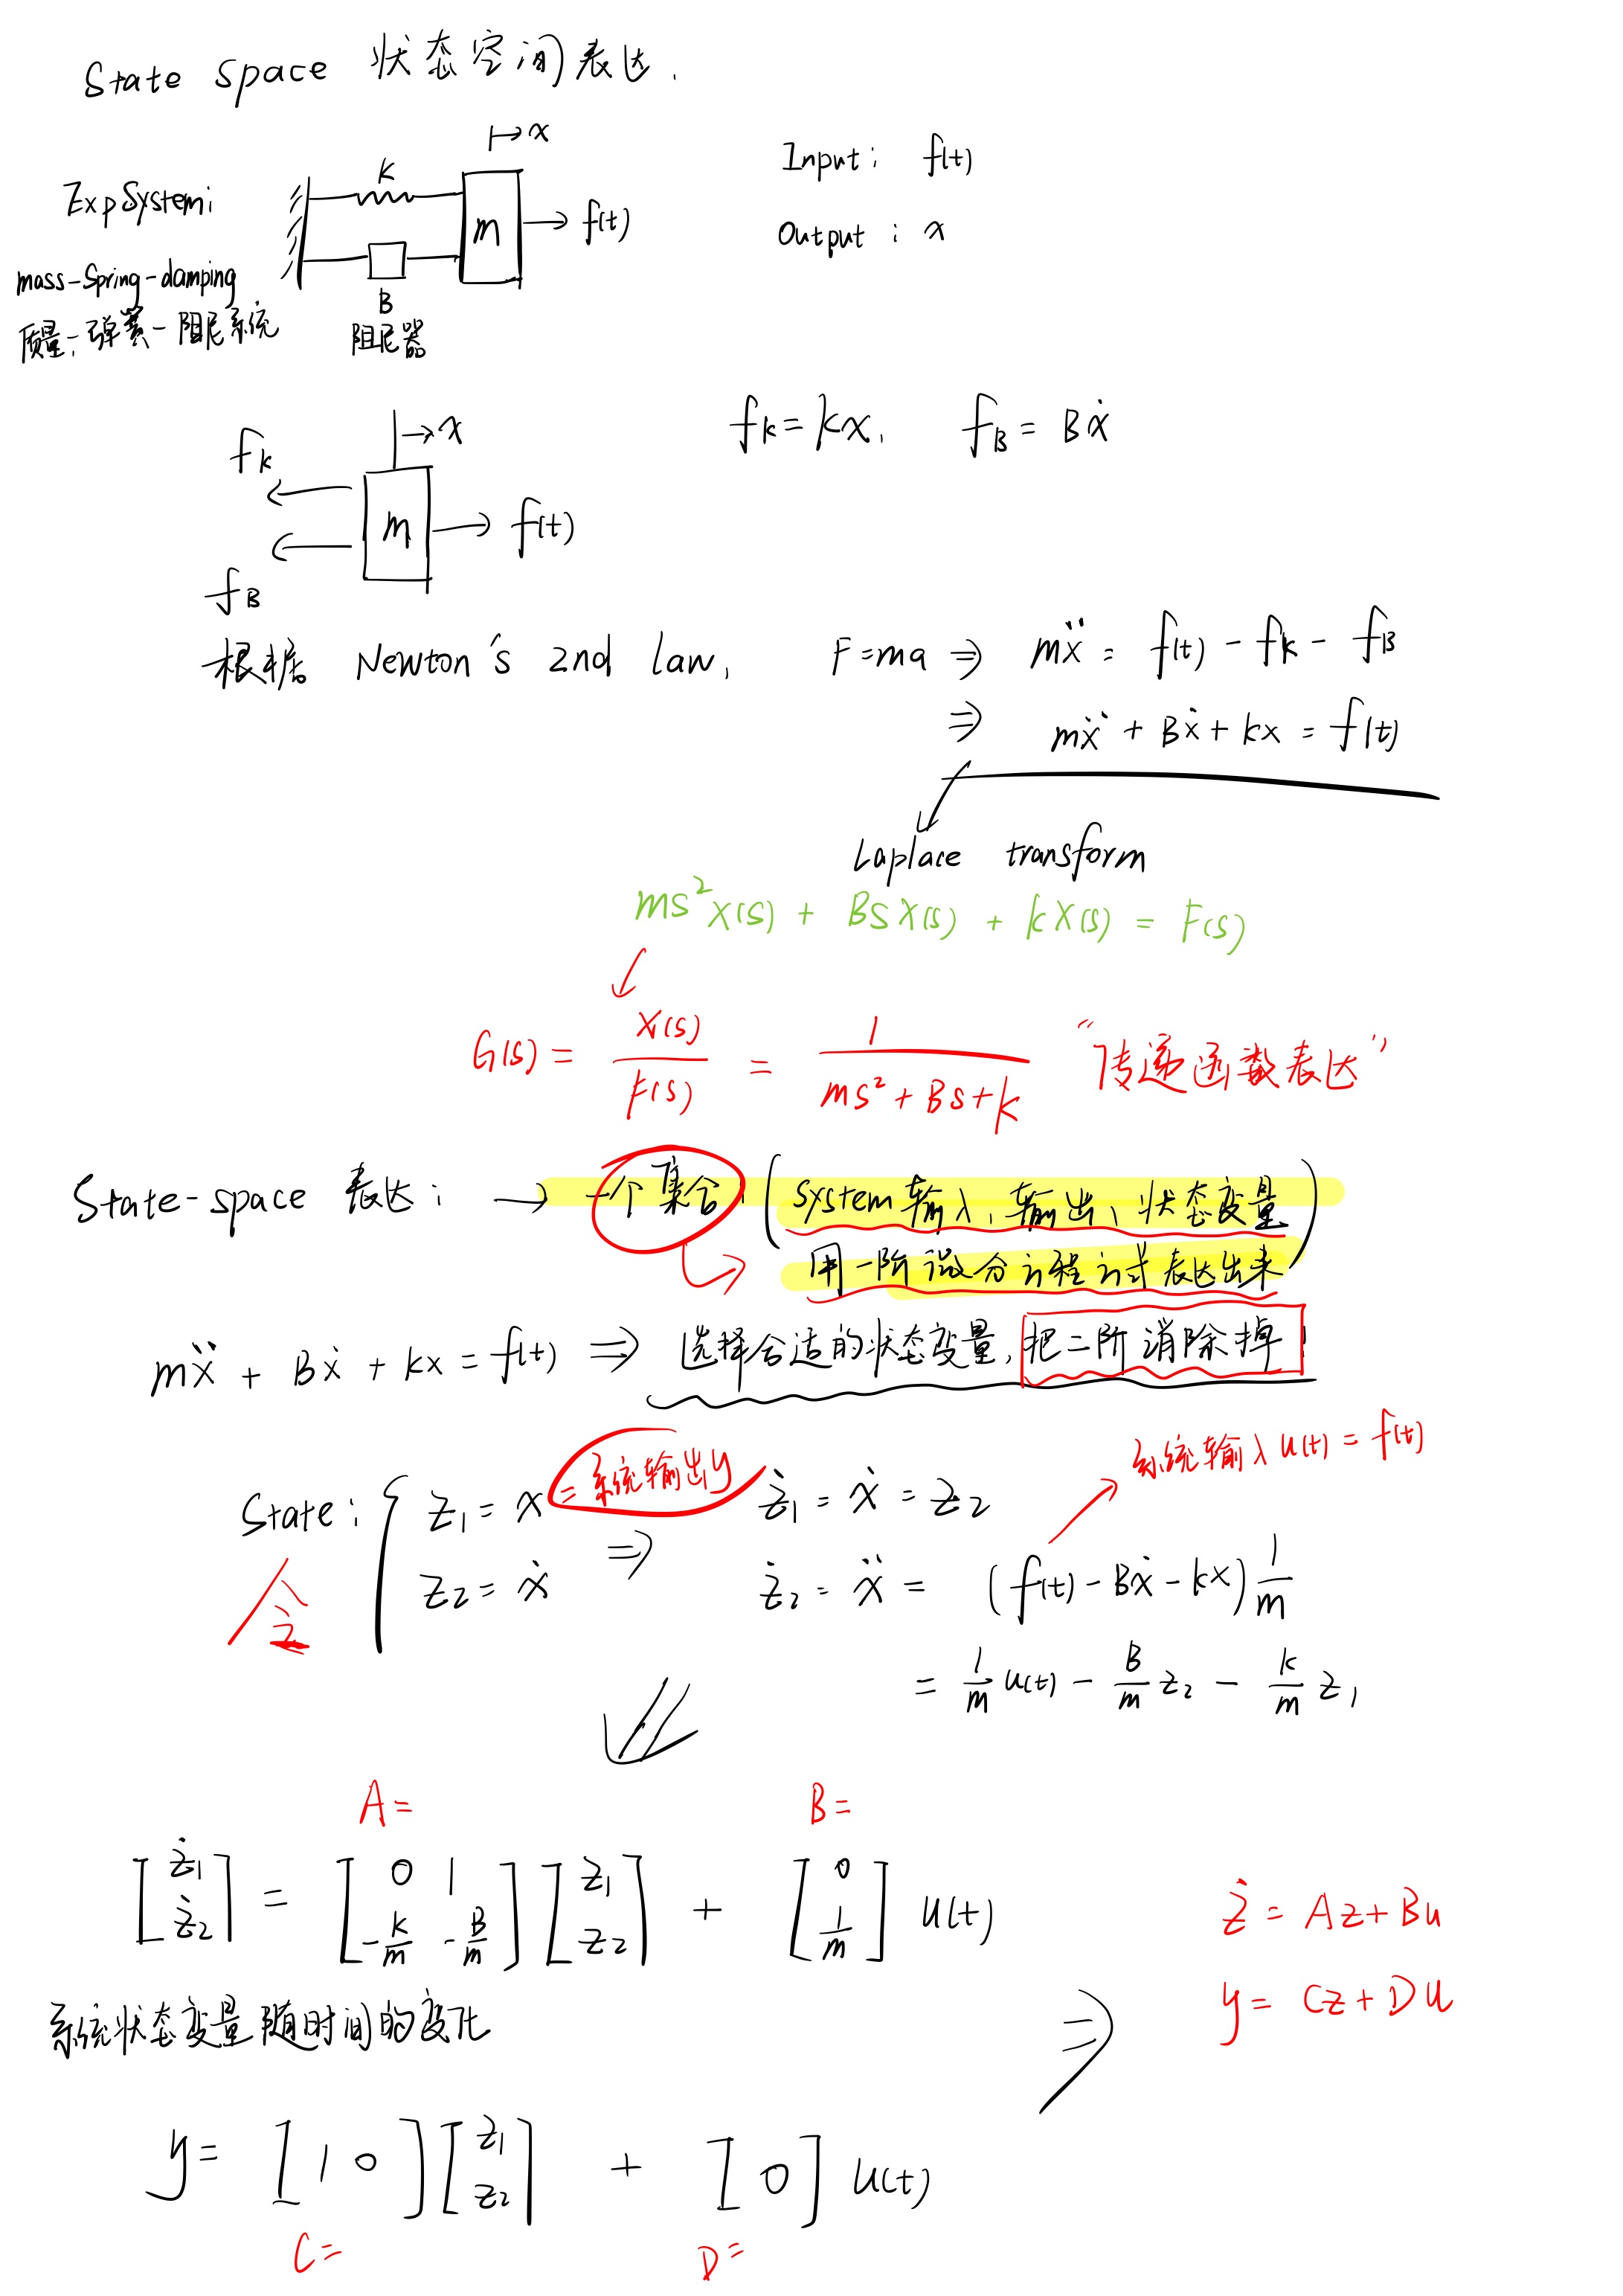 State space 状态空间表达.
Exp System:
mass-spring-damping
质量-弹簧-阻尼系统
K
B
阻尼器
m
x
f(t)
Input: f(t)
Output: x
f_K
f_B
m
x
f(t)
f_k = kx, f_B = Bẋ
根据 Newton's 2nd law, F=ma ⇒ mẍ = f(t) - f_k - f_B
⇒ mẍ + Bẋ + kx = f(t)
Laplace transform
ms²X(s) + BsX(s) + kX(s) = F(s)
G(s) = X(s)/F(s) = 1/(ms² + Bs + k) “传递函数表达”
State-space 表达: → 一个集合: (system 输入、输出、状态变量
用一阶微分方程方式表达出来)
mẍ + Bẋ + kx = f(t) ⇒ 选择合适的状态变量, 把二阶消除掉!
系统输入 u(t) = f(t)
State: { z₁ = x = 系统输出y ⇒ ż₁ = ẋ = z₂
令 z₂ = ẋ ż₂ = ẍ = (f(t) - Bẋ - kx) 1/m
= 1/m u(t) - B/m z₂ - k/m z₁
A= B=
[ż₁ ; ż₂] = [0 1 ; -k/m -B/m] [z₁ ; z₂] + [0 ; 1/m] u(t)
系统状态变量随时间的变化
⇒ ż = Az + Bu
y = Cz + Du
y = [1 0] [z₁ ; z₂] + [0] u(t)
C= D=